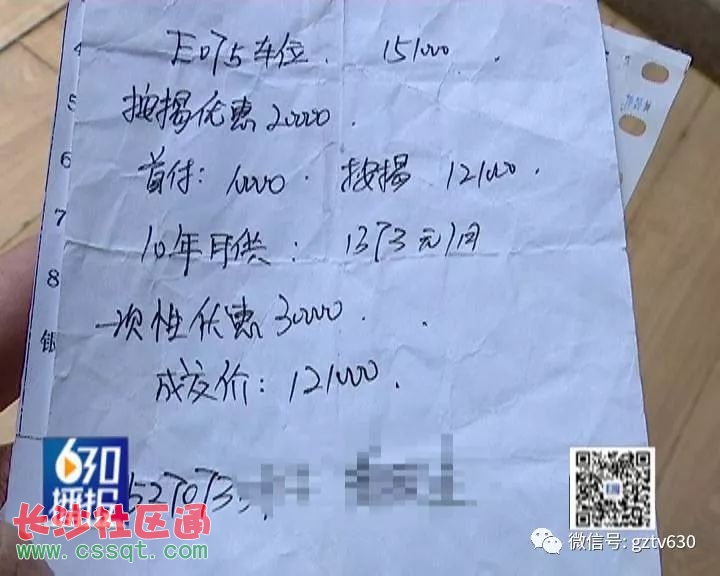 4
5
6
7
8
银
E075车位. 151000.
按揭优惠20000.
首付: 10000. 按揭 121000.
10年月供: 1373元/月
一次性优惠30000.
成交价: 121000.
527073
630
播报
长沙社区通
www.cssqt.com
微信号: gztv630